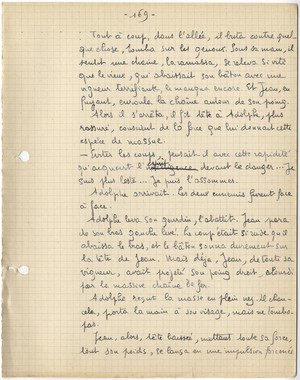 - 169 -
: Tout à coup, dans l'allée, il buta contre quel-
que chose, tomba sur les genoux. Sous sa main, il
sentit une chaîne, la ramassa, se releva si vite
que le vieux, qui abaissait son bâton avec une
vigueur terrifiante, le manqua encore. Et Jean, en
fuyant, enroula la chaîne autour de son poing.
Alors il s'arrêta, il fit tête à Adolphe, plus
rassuré, conscient de la force que lui donnait cette
espèce de massue.
- Éviter les coups, pensait-il avec cette rapidité
qu'acquiert l' devant le danger... Je
suis plus leste... Je puis l'assommer.
Adolphe arrivait. Les deux ennemis furent face
à face.
Adolphe leva son gourdin, l'abattit. Jean para
de son bras gauche levé. Le coup était si rude qu'il
abaissa le bras, et le bâton sonna durement sur
la tête de Jean. Mais déjà, Jean, de toute sa
vigueur, avait projeté son poing droit, alourdi
par la massive chaîne de fer.
Adolphe reçut la masse en plein nez. Il chan-
cela, porta la main à son visage, mais ne tomba
pas.
Jean, alors, tête baissée, mettant toute sa force,
tout son poids, se lança en une impulsion forcenée